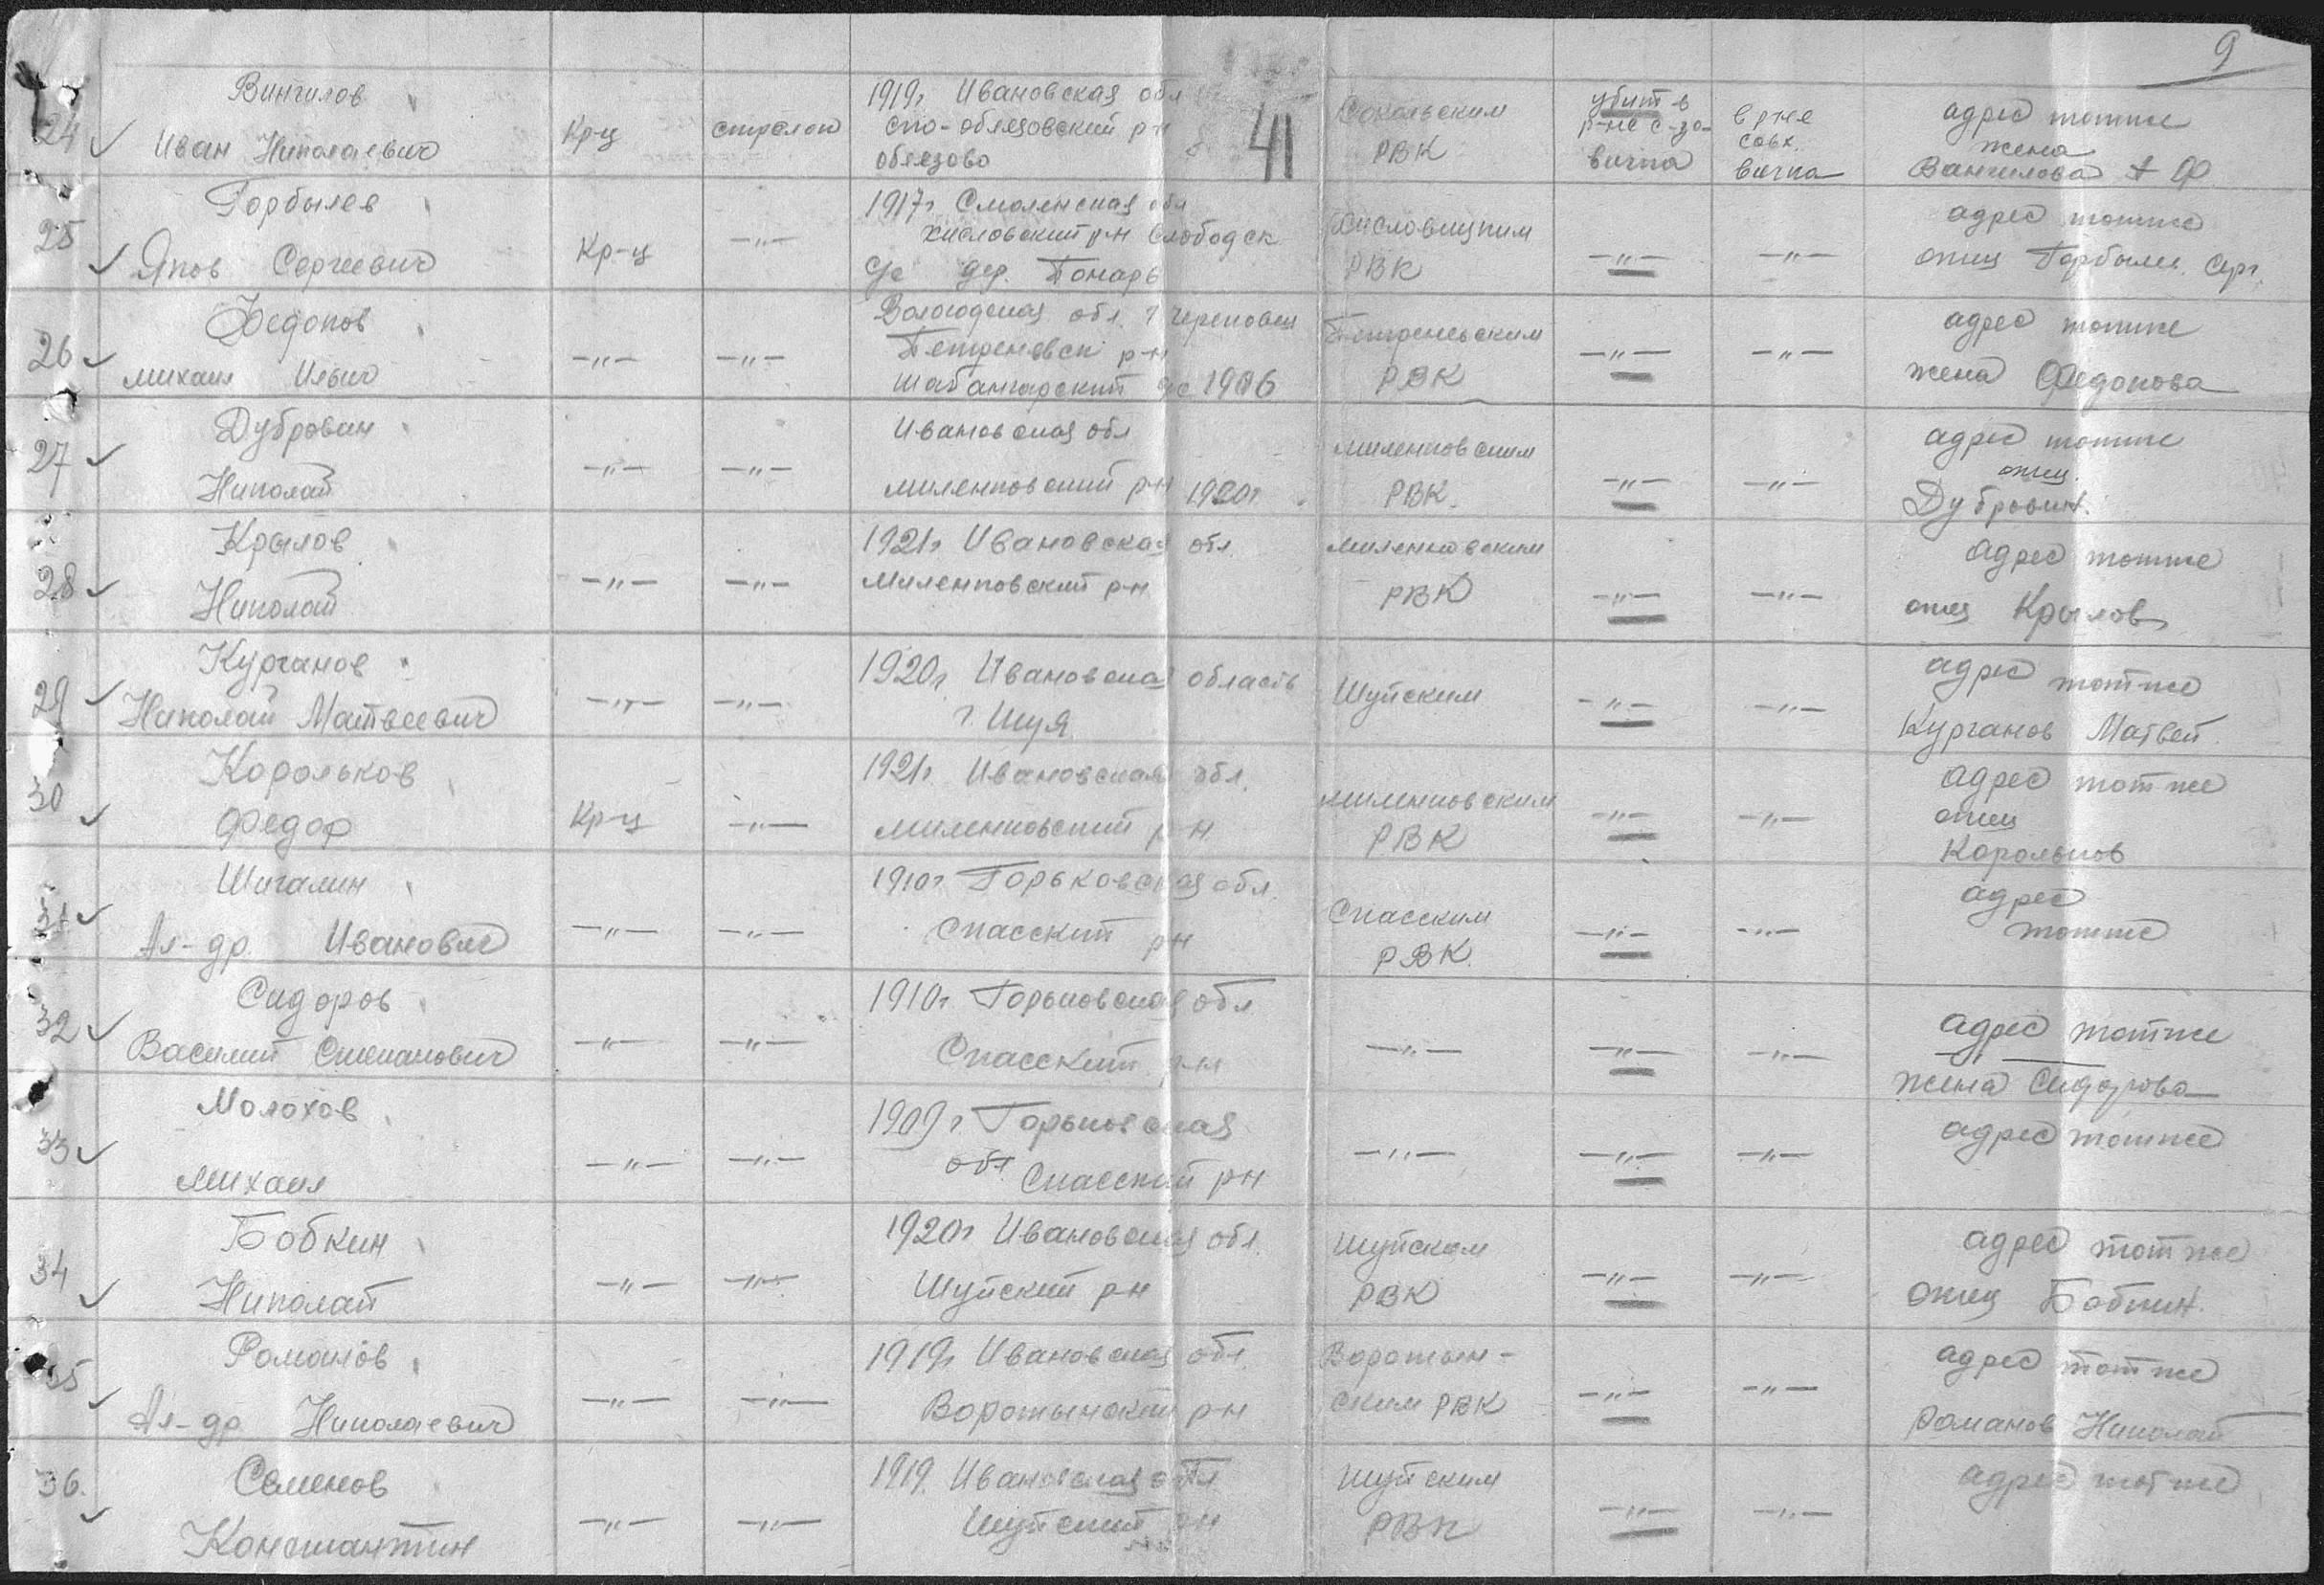 9
41
24 Вингилов
Иван Николаевич
Кр-ц
стрелок
1919г Ивановская обл
обляцовский р-н
облезово
Сокольским
РВК
убит в
р-не с-за
вичпа
в р-не
совх.
вичпа
адрес тотже
жена
Вангилова А Ф
25 Горбылев
Яков Сергеевич
Кр-ц
—"—
1917г Смоленская обл
хисловский р-н Слободск
с/с дер. Понарь
Хисловицким
РВК
—"—
—"—
адрес тотже
отец Горбылев Серг.
26 Федоков
михаил Ильич
—"—
—"—
Вологодская обл. г Череповец
Петреневск р-н
с/с 1906
Петреневским
РВК
—"—
—"—
адрес тотже
жена Федокова
27 Дуброван
Николай
—"—
—"—
Ивановская обл
миленковский р-н 1920г
миленковским
РВК.
—"—
—"—
адрес тотже
отец
Дубровин.
28 Крылов
Николай
—"—
—"—
1921г Ивановская обл.
Миленковский р-н
миленковским
РВК
—"—
—"—
адрес тотже
отец Крылов
29 Курганов
Николай Матвеевич
—"—
—"—
1920г. Ивановская область
г. Шуя
Шуйским
—"—
—"—
адрес тотже
Курганов Матвей.
30 Корольков
Федор
Кр-ц
—"—
1921г. Ивановская обл.
миленковский р-н
миленковским
РВК
—"—
—"—
адрес тотже
отец
Корольков
31 Шигалин
Ал-др. Иванович
—"—
—"—
1910г Горьковская обл.
Спасский рн
Спасским
РВК.
—"—
—"—
адрес
тотже
32 Сидоров
Василий Степанович
—"—
—"—
1910г. Горьковская обл
Спасский р-н
—"—
—"—
—"—
адрес тотже
жена Сидорова
33 Молохов
михаил
—"—
—"—
1909г. Горьковская
обл Спасский рн
—"—
—"—
—"—
адрес тотже
34 Бобкин
Николай
—"—
—"—
1920г Ивановская обл.
Шуйский р-н
Шуйским
РВК
—"—
—"—
адрес тотже
отец Бобкин.
35 Романов
Ал-др Николаевич
—"—
—"—
1919г Ивановская обл
Воротынский р-н
Воротын-
ским РВК
—"—
—"—
адрес тотже
Романов Николай
36. Семенов
Константин
—"—
—"—
1919. Ивановская обл
Шуйский рн
Шуйским
РВК
—"—
—"—
адрес тотже